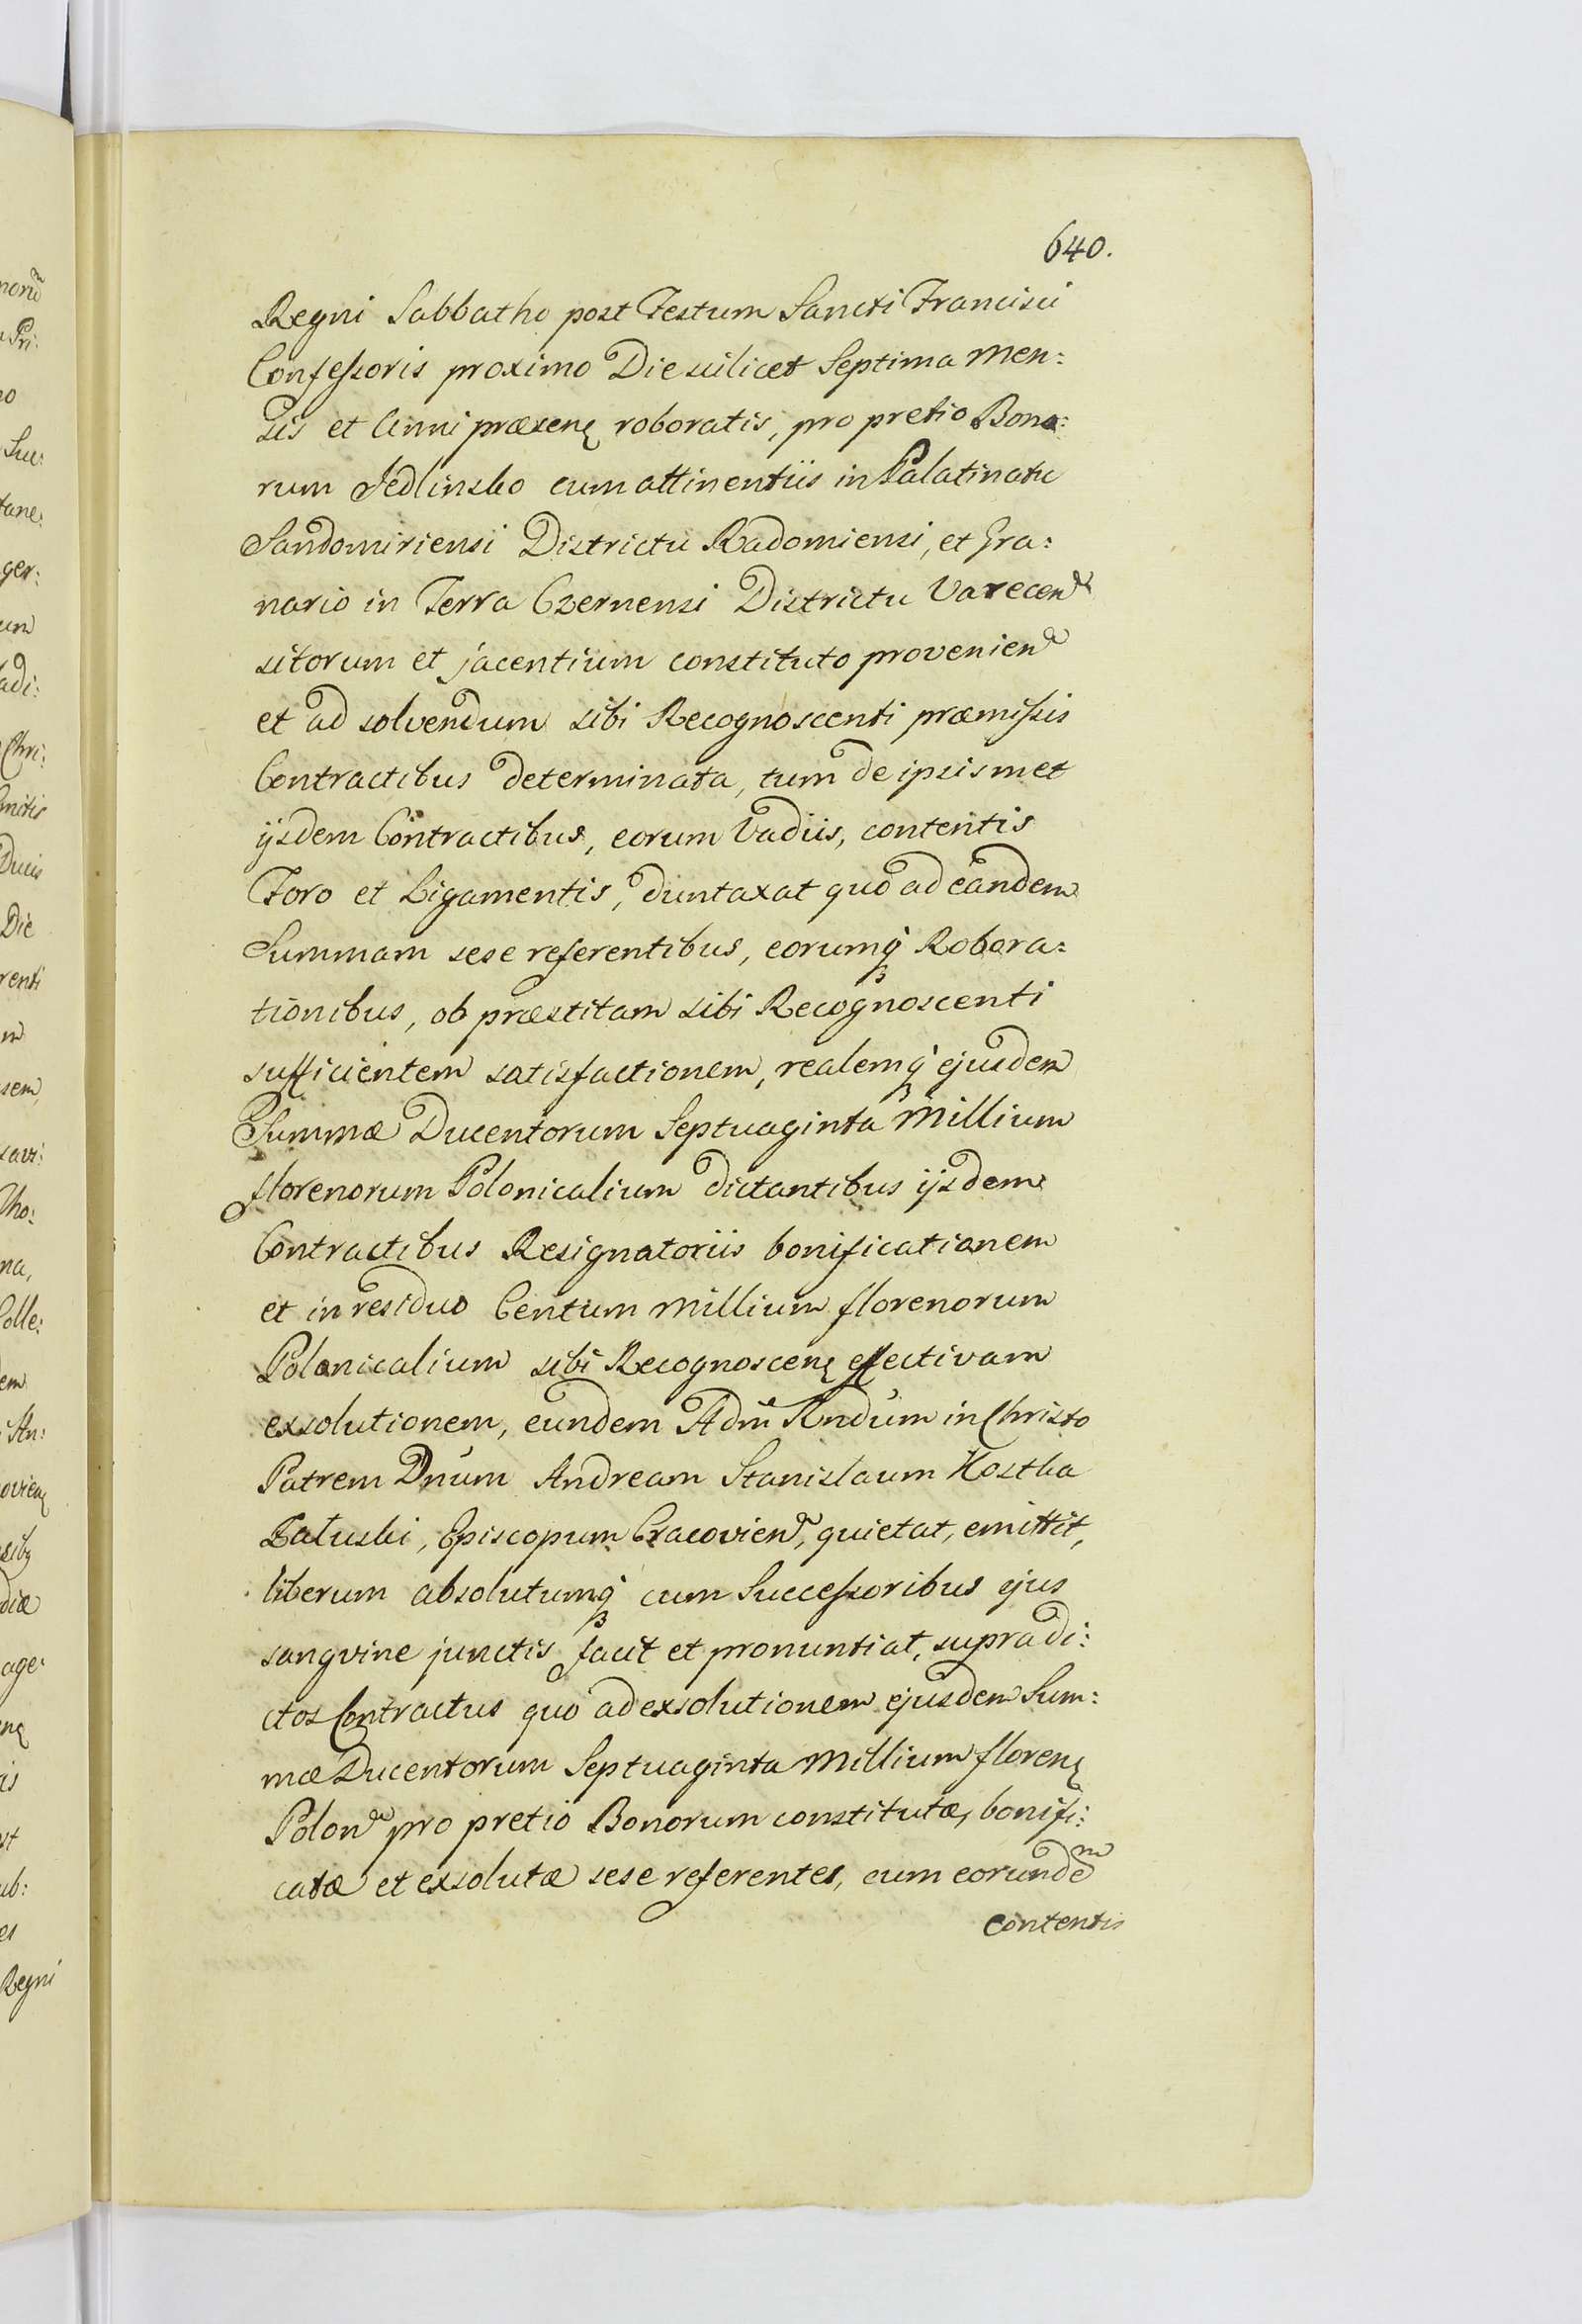 640.
Regni Sabbatho post Festum Sancti Francisci
Confessoris proximo Die scilicet Septima Men:
sis et Anni præsenς roboratis, pro pretio Bono:
rum Jedlinsko cum attinentiis in Palatinatu
Sandomiriensi Districtu Radomiensi, et Gra:
nario in Terra Czernensi Districtu Varecen͂
sitorum et jacentium constituto provenien͂
et ad solvendum sibi Recognoscenti præmissis
Contractibus determinata, tum de ipsismet
ijsdem Contractibus, eorum Vadiis, contentis
Foro et Ligamentis, duntaxat quo ad eandem
Summam sese referentibus, eorumq̢ Robora:
tionibus, ob præstitam sibi Recognoscenti
sufficientem satisfactionem, realemq̢ ejusdem
Summæ Ducentorum Septuaginta Millium
florenorum Polonicalium dictantibus ijsdem
Contractibus Resignatoriis bonificationem
et in residuo Centum Millium florenorum
Polonicalium sibi Recognoscenς effectivam
exsolutionem, eundem Adm̃ Rndum in Christo
Patrem Dnum Andream Stanislaum Kostka
Załuski, Episcopum Cracovien͂, quietat, emittit,
liberum absolutumq̢ cum Successoribus ejus
sangvine junctis facit et pronuntiat, supradi:
ctos Contractus quo ad exsolutionem ejusdem Sum:
mæ Ducentorum Septuaginta Millium florenς
Polon͂ pro pretio Bonorum constitutæ, bonifi:
catæ et exsolutæ sese referentes, cum eorundeᵐ
contentis